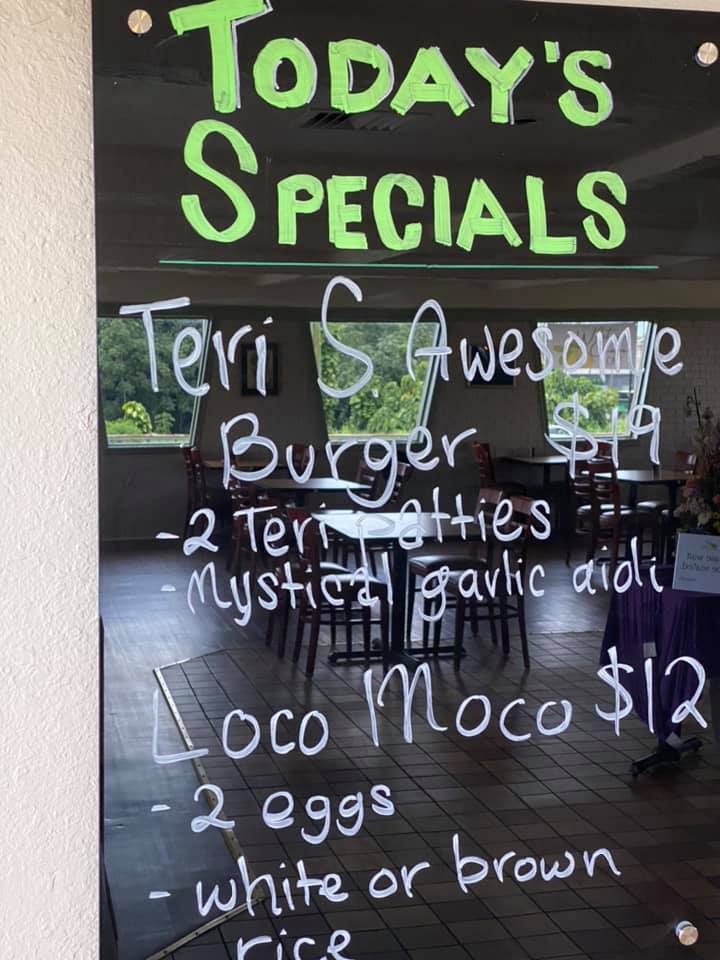 TODAY'S
SPECIALS
Teri S Awesome
Burger $19
- 2 Teri patties
- Mystical garlic aioli
Loco Moco $12
- 2 eggs
- white or brown
rice